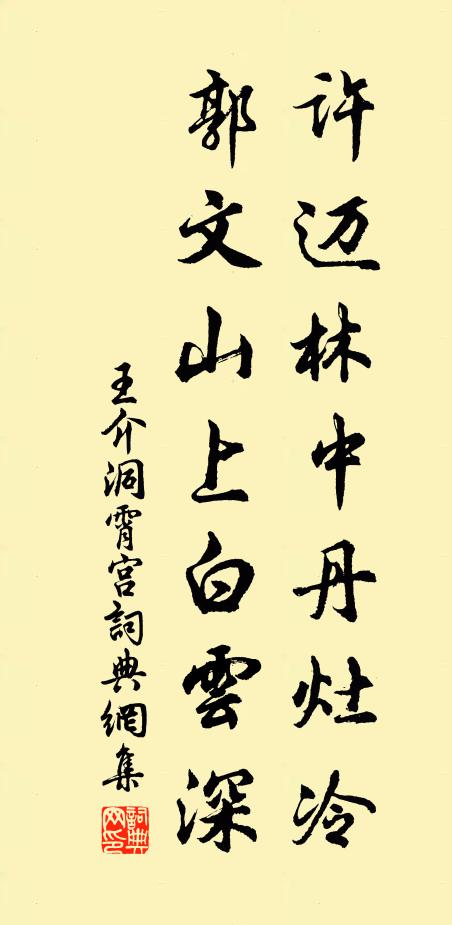 许迈林中丹灶冷
郭文山上白雲深
王介洞霄宫詞典網集
詞典
网印